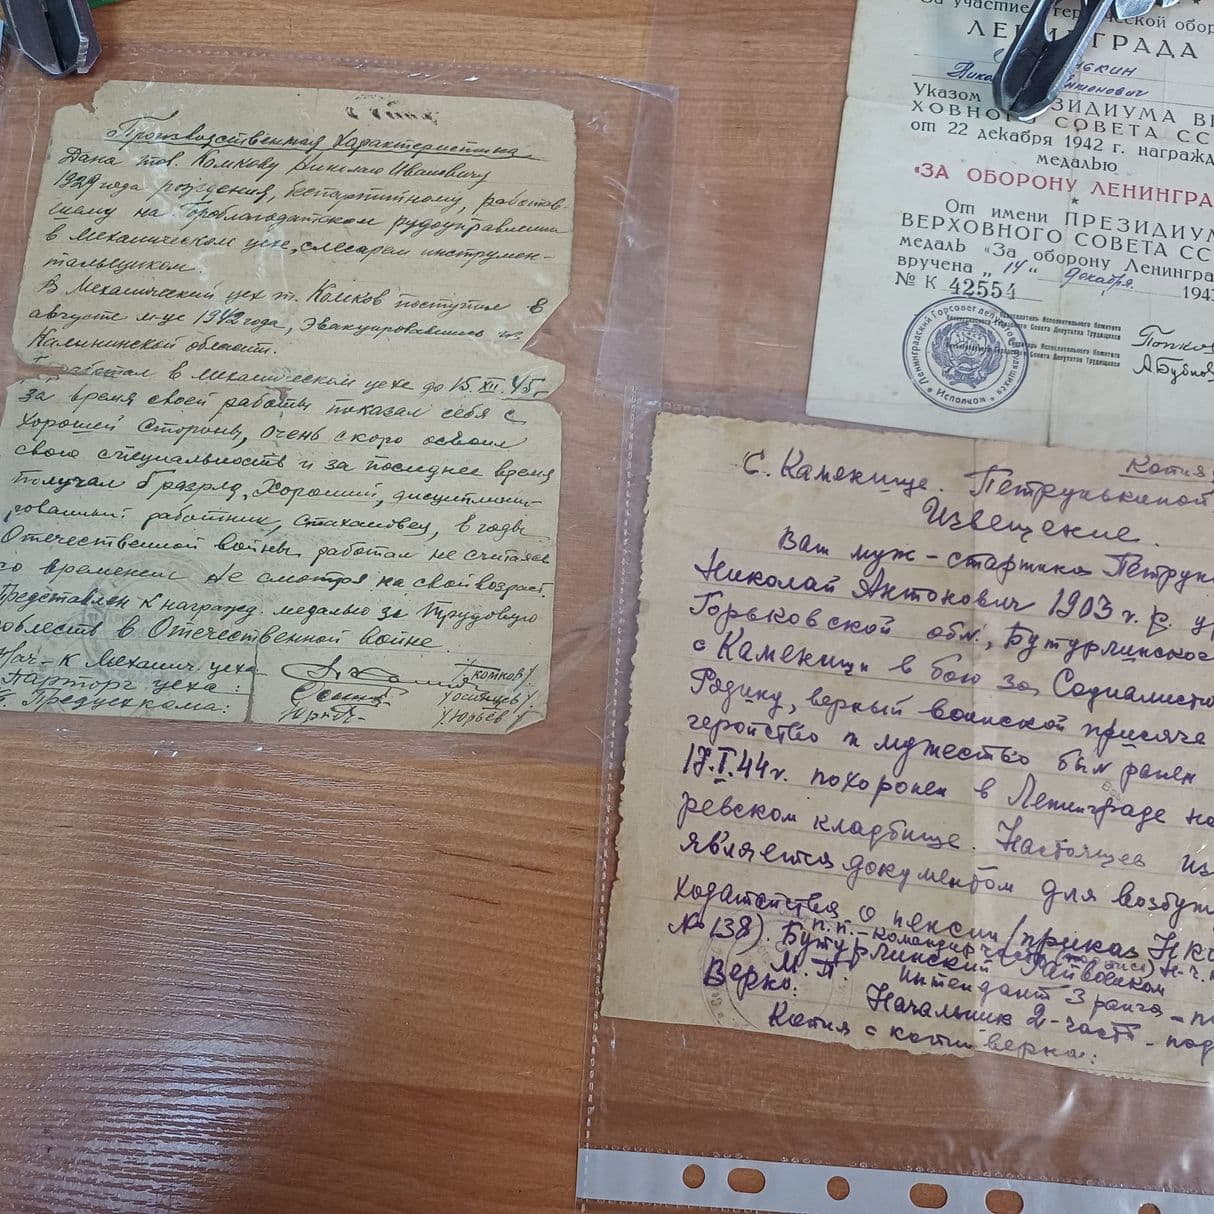 Производственная характеристика
Дана тов. Комкову Николаю Ивановичу
1929 года рождения, беспартийному, работав-
шему на Гороблагодатском рудоуправлении
в механическом цехе, слесарем инструмен-
тальщиком.
В механический цех т. Комков поступил в
августе м-це 1942 года, эвакуировавшись из
Калининской области.
Работал в механическом цехе до 15.XII.45,
за время своей работы показал себя с
хорошей стороны, очень скоро освоил
свою специальность и за последнее время
получал 6 разряд, хороший, дисциплини-
рованный работник, стахановец, в годы
Отечественной войны работал не считаясь
со временем не смотря на свой возраст.
Представлен к награжд. медалью за трудовую
доблесть в Отечественной войне.
Нач-к механич. цеха
Парторг цеха:
Предцехкома:
/Юрьев/.
За участие в героической обор
ЛЕНИНГРАДА
Указом ПРЕЗИДИУМА ВЕ
ХОВНОГО СОВЕТА СС
от 22 декабря 1942 г. награжд
медалью
«ЗА ОБОРОНУ ЛЕНИНГРА
От имени ПРЕЗИДИУМ
ВЕРХОВНОГО СОВЕТА СС
медаль «За оборону Ленингра
вручена „14“ декабря 194
№ К 42554
Ленинградский Горсовет депутатов трудящихся
Исполком
Исполнительного Комитета
Ленинградского Городского Совета Депутатов Трудящихся
Секретарь Исполнительного Комитета
Ленинградского Городского Совета Депутатов Трудящихся
Попков
А Бубнов
Копия
С. Каменище. Петрунькиной
Извещение.
Ваш муж - старшина Петрунь
Николай Антонович 1903 г. р. ур
Горьковской обл., Бутурлинског
с Каменищи в бою за Социалисти
Родину, верный воинской присяге
геройство и мужество был ранен
17.I.44г. похоронен в Ленинграде на
ревском кладбище. Настоящее из
является документом для возбуж
ходатайства о пенсии (приказ НКО
№ 138). п.п. - командир части (подпись) Н-ч.
Бутурлинский Райвоенком
М.П. интендант 3 ранга - по
Верно: Начальник 2-части - под
Копия с копии верна: